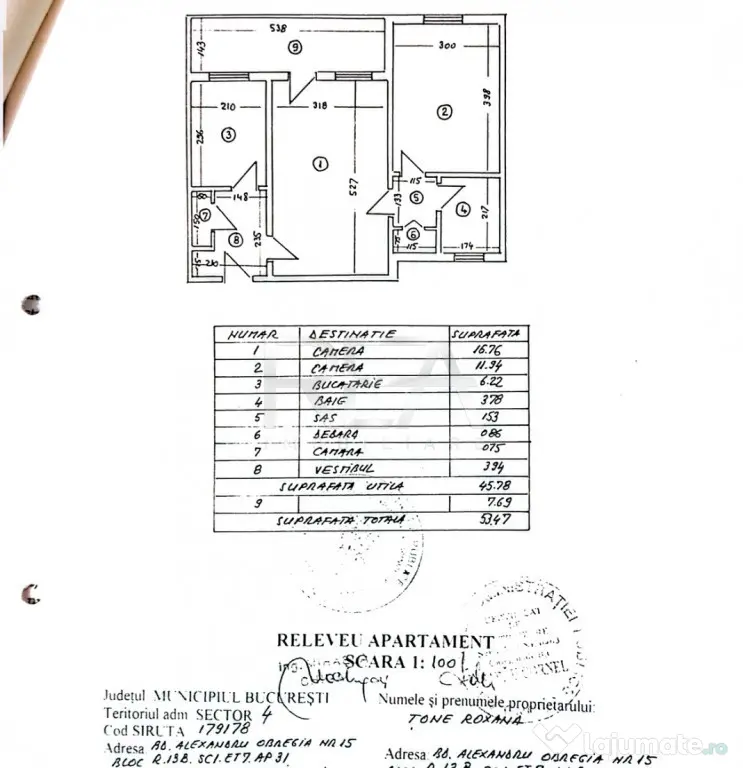 538
143
9
300
210
318
398
2
3
296
1
527
115
133
5
4
217
148
60
7
150
8
235
6
75
115
174
210
75
NUMAR DESTINATIE SUPRAFATA
1 CAMERA 16.76
2 CAMERA 11.94
3 BUCATARIE 6.22
4 BAIE 378
5 SAS 153
6 DEBARA 086
7 CAMARA 075
8 VESTIBUL 394
SUPRAFATA UTILA 45.78
9 7.69
SUPRAFATA TOTALA 53.47
RELEVEU APARTAMENT
SCARA 1: 100
Județul MUNICIPIUL BUCUREȘTI
Numele și prenumele proprietarului:
Teritoriul adm SECTOR 4
TONE ROXANA
Cod SIRUTA 179178
Adresa BD. ALEXANDRU OBREGIA NR 15
Adresa BD. ALEXANDRU OBREGIA NR 15
BLOC R.13B. SC1. ET7. AP31
lajumate.ro